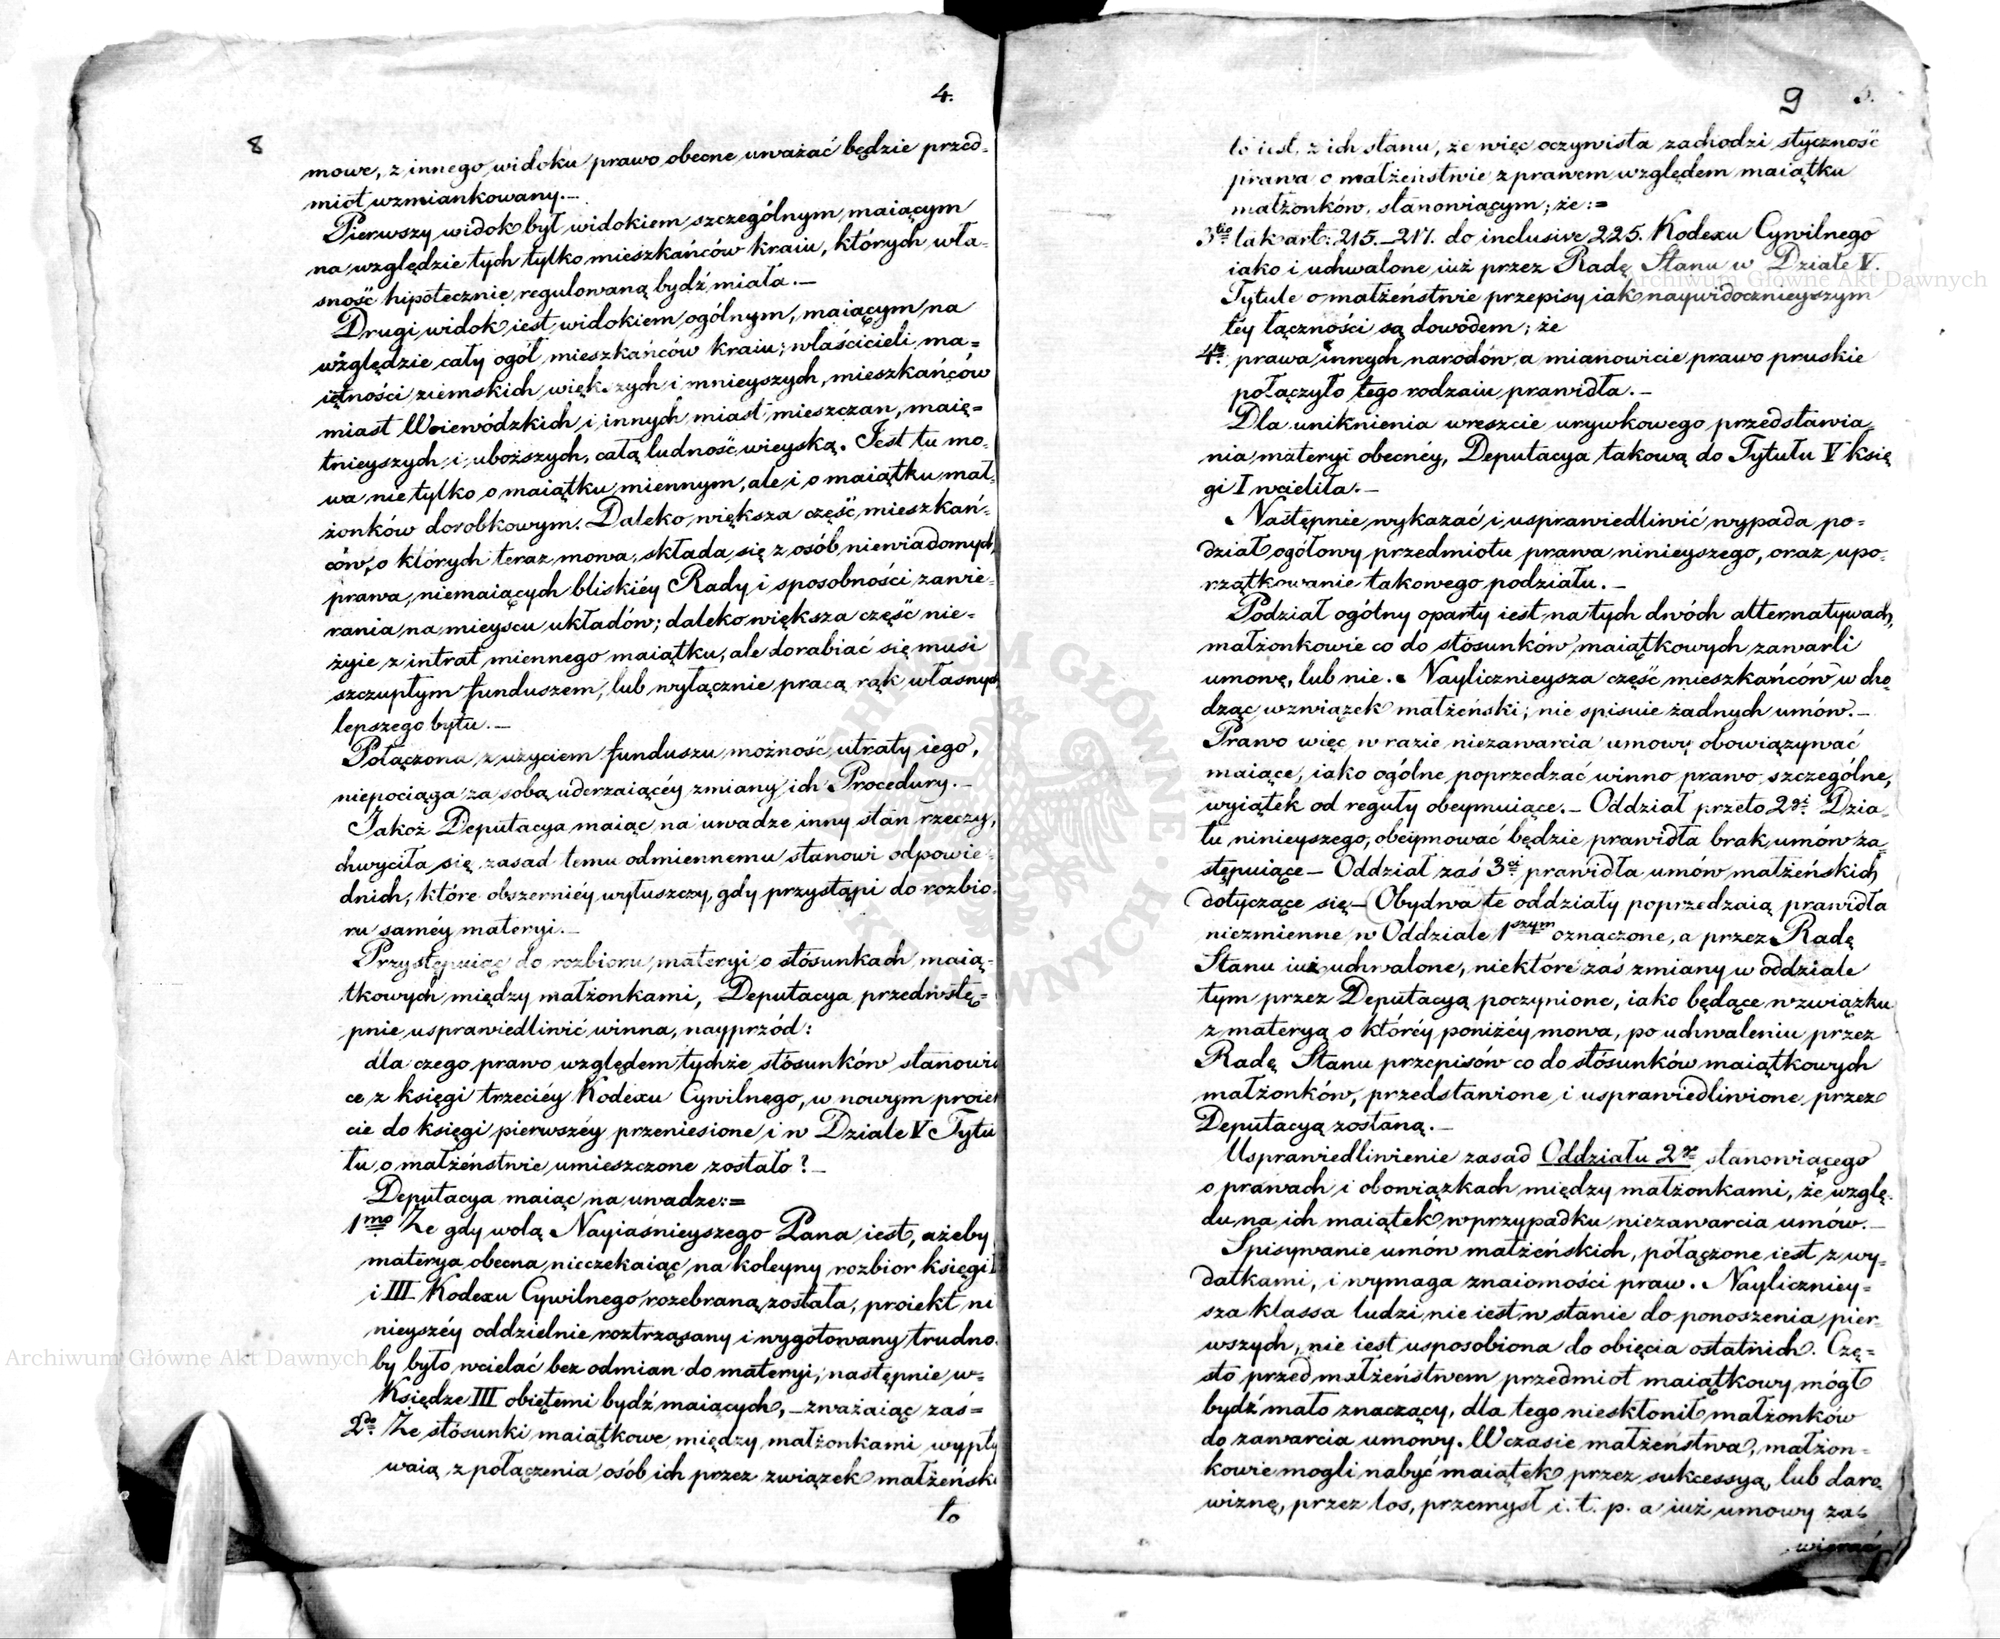 4.
8
mowe, z innego widoku prawo obecne uważać będzie przed-
miot wzmiankowany.—
Pierwszy widok był widokiem szczególnym maiącym
na względzie tych tylko mieszkańców kraiu, których wła-
sność hipotecznie regulowaną bydź miała.—
Drugi widok iest widokiem ogólnym, maiącym na
względzie cały ogół mieszkańców kraiu; właścicieli ma=
iętności ziemskich większych i mnieyszych, mieszkańców
miast Woiewódzkich i innych miast mieszczan, maię=
tnieyszych i uboższych, całą ludność wieyską. Jest tu mo-
wa nie tylko o maiątku miennym, ale i o maiątku mał-
żonków dorobkowym. Daleko większa część mieszkań-
ców, o których teraz mowa, składa się z osób niewiadomych
prawa, niemaiących bliskiéy Rady i sposobności zawie-
rania na mieyscu układów; daleko większa część nie-
żyie z intrat miennego maiątku, ale dorabiać się musi
szczupłym funduszem, lub wyłącznie pracą rąk własnych
lepszego bytu.—
Połączona z użyciem funduszu możność utraty iego,
niepociąga za sobą uderzaiącéy zmiany ich Procedury.—
Jakoż Deputacya maiąc na uwadze inny stan rzeczy,
chwyciła się zasad temu odmiennemu stanowi odpowie-
dnich, które obszerniéy wyłuszczy, gdy przystąpi do rozbio-
ru saméy materyi.—
Przystępuiąc do rozbioru materyi o stósunkach maią-
tkowych między małżonkami, Deputacya przedwstę=
pnie usprawiedliwić winna, nayprzód:
dla czego prawo względem tychże stósunków stanowią
ce z księgi trzeciéy Kodexu Cywilnego, w nowym proiek
cie do księgi pierwszéy przeniesione i w Dziale V Tytu
łu o małżeństwie umieszczone zostało?—
Deputacya maiąc na uwadze:=
1mo Że gdy wolą Nayiaśnieyszego Pana iest, ażeby
materya obecna nieczekaiąc na koleyny rozbior księgi II
i III Kodexu Cywilnego rozebraną została, proiekt ni
nieyszéy oddzielnie roztrząsany i wygotowany trudno
by było wcielać bez odmian do materyi, następnie w=
Księdze III obiętemi bydź maiących,—zważaiąc zaś=
2do Że stósunki maiątkowe między małżonkami wypły
waią z połączenia osób ich przez związek małżeński
to
9
5.
to iest, z ich stanu, że więc oczywista zachodzi styczność
prawa o małżeństwie z prawem względem maiątku
małżonków, stanowiącym; że:=
3tio tak art: 215.—217. do inclusive 225. Kodexu Cywilnego
iako i uchwalone iuż przez Radę Stanu w Dziale V.
Tytule o małżeństwie przepisy iak naywidocznieyszym
téy łączności są dowodem; że
4to prawa innych narodów, a mianowicie prawo pruskie
połączyło tego rodzaiu prawidła.—
Dla uniknienia wreszcie urywkowego przedstawia-
nia materyi obecnéy, Deputacya takową do Tytułu V księ
gi I wcieliła.—
Następnie wykazać i usprawiedliwić wypada po=
dział ogółowy przedmiotu prawa ninieyszego, oraz upo-
rządkowanie takowego podziału.—
Podział ogólny oparty iest na tych dwóch alternatywach,
małżonkowie co do stósunków maiątkowych zawarli
umowę, lub nie. Naylicznieysza część mieszkańców w cho
dząc w związek małżeński; nie spisuie żadnych umów.—
Prawo więc w razie niezawarcia umowy obowiązywać
maiące, iako ogólne poprzedzać winno prawo szczególne,
wyiątek od reguły obeymuiące.— Oddział przeto 2gi Dzia-
łu ninieyszego, obeymować będzie prawidła brak umów za-
stępuiące— Oddział zaś 3ci prawidła umów małżeńskich
dotyczące się.— Obydwa te oddziały poprzedzaią prawidła
niezmienne w Oddziale 1szym oznaczone, a przez Radę
Stanu iuż uchwalone, niektóre zaś zmiany w oddziale
tym przez Deputacyą poczynione, iako będące w związku
z materyą o któréy poniżéy mowa, po uchwaleniu przez
Radę Stanu przepisow co do stósunków maiątkowych
małżonków, przedstawione i usprawiedliwione przez
Deputacyą zostaną.—
Usprawiedliwienie zasad Oddziału 2go stanowiącego
o prawach i obowiązkach między małżonkami, że wzglę-
du na ich maiątek w przypadku niezawarcia umów.—
Spisywanie umów małżeńskich, połączone iest z wy-
datkami, i wymaga znaiomości praw. Nayliczniey-
sza klassa ludzi nie iest w stanie do ponoszenia pier-
wszych, nie iest usposobiona do obięcia ostatnich. Czę=
sto przed małżeństwem przedmiot maiątkowy mógł
bydź mało znaczący, dla tego niesklonił małżonków
do zawarcia umowy. W czasie małżeństwa, małżon=
kowie mogli nabyć maiątek przez sukcessyą, lub daro-
wiznę, przez los, przemysł i. t. p. a iuż umowy za-
wierać
Archiwum Główne Akt Dawnych
Archiwum Główne Akt Dawnych
ARCHIWUM GŁÓWNE AKT DAWNYCH